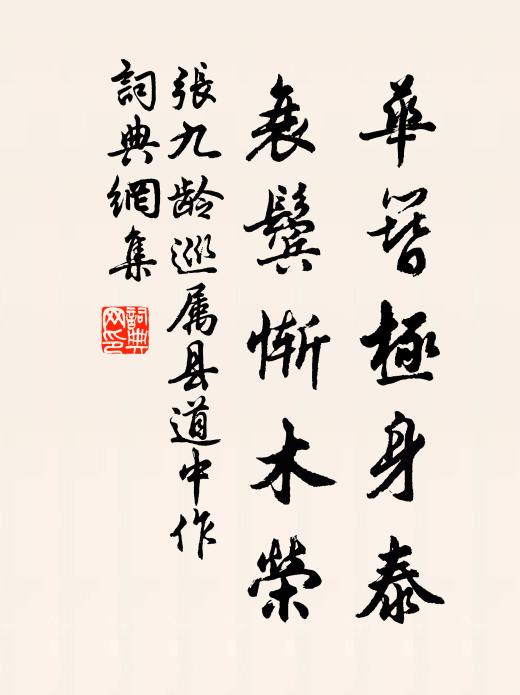 華簪極身泰
衰鬢慚木榮
張九齡巡属县道中作
詞典網集
詞典
网印